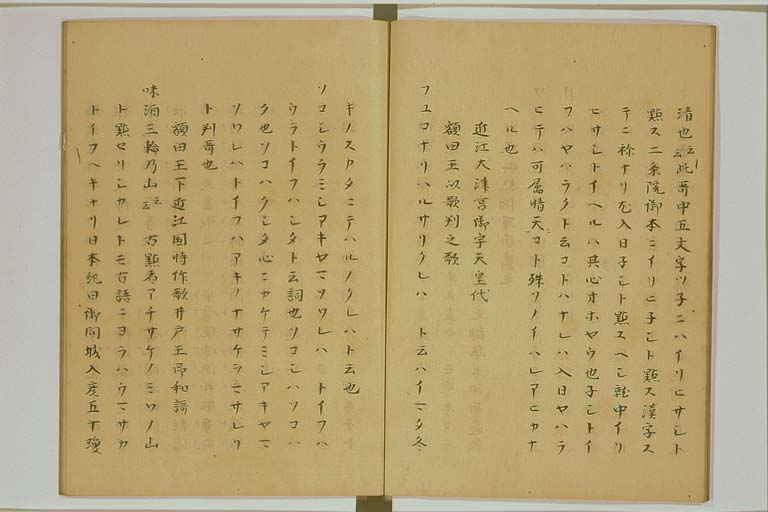 清也云云此哥中五文字ツ子ニハイリヒサシト
點ス二条院御本ニイリヒ子シト點ス漢字ス
テニ祢ナリ尤入日子シト點スヘシ乾中イリ
ヒサシトイヘルハ其心オホヤウ也子シトイ
フハヤハラクト云コトハナレハ入日ヤハラ
ヒテハ可属晴天コト殊ソノイハレアヒカナ
ヘル也
近江大津宮御宇天皇代
額田王以歌判之歌
フユコナリハルサリクレハ ト云ハイマタ冬
キノスカタニテハルノクレハト云也
ソコシウラミシアキヤマソワレハ トイフハ
ウラトイフハシタト云詞也ソコシハソコハ
ク也ソコハクシタ心ニカケテミシアキヤマ
ソワレハトイフハアキノナサケヲマサレリ
ト判哥也
額田王下近江国時作歌井戸王即和謌
味酒三輪乃山云云 古點者アチサケノミワノ山
ト點セリシカレトモ古語ニヨラハウマサカ
トイフヘキナリ日本紀曰御間城入彦五十瓊